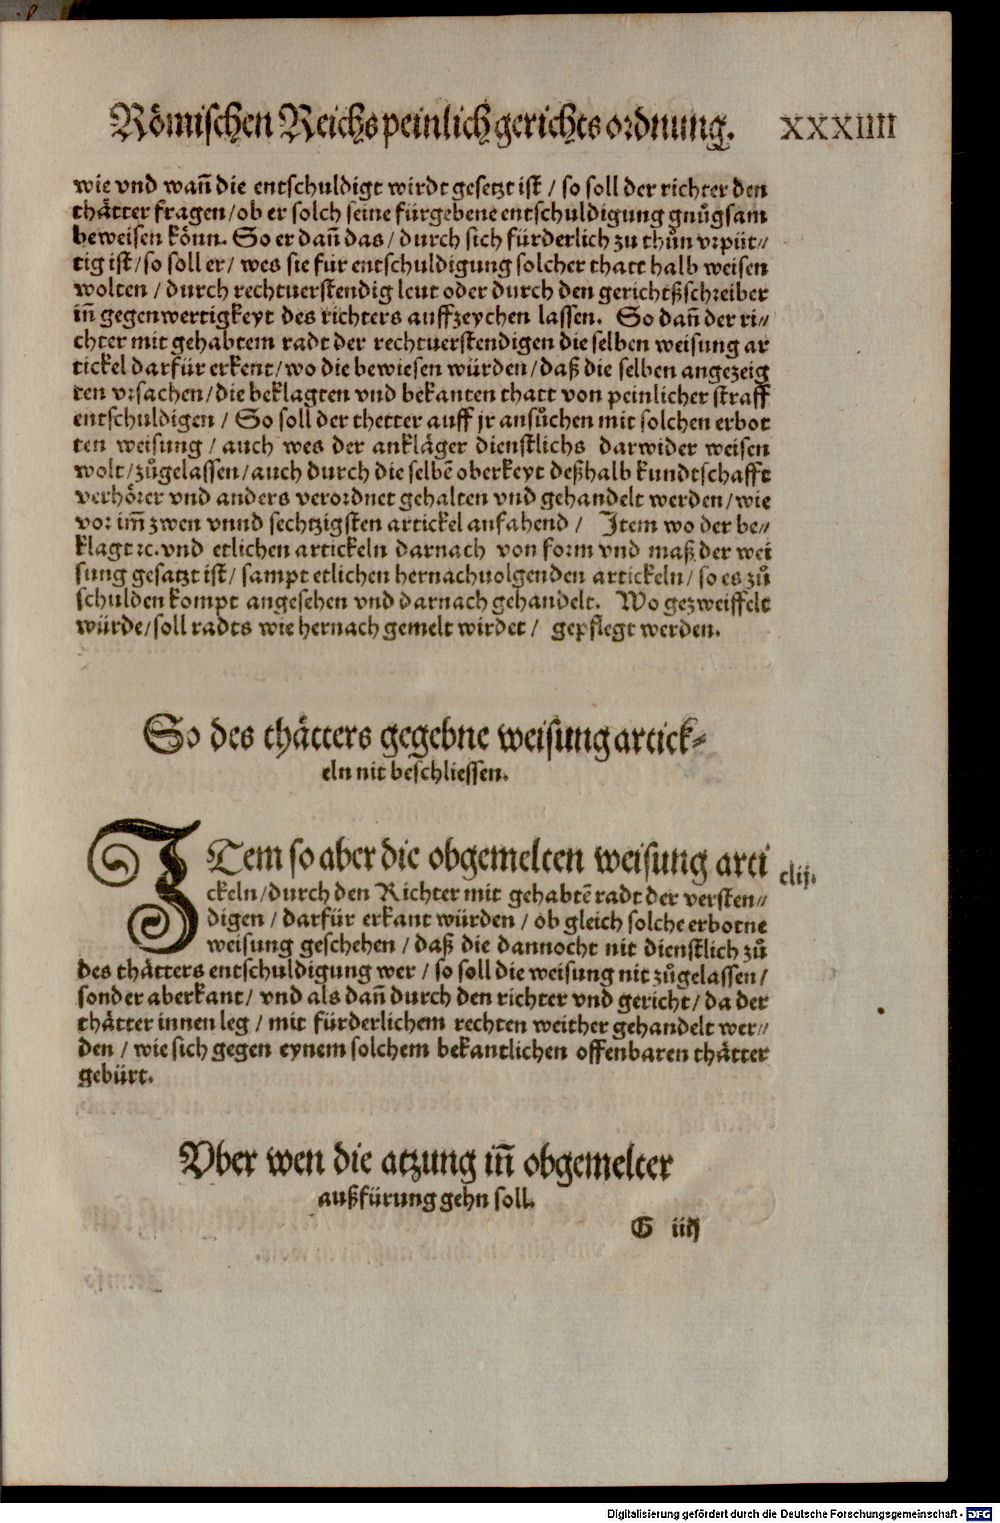 Römischen Reichs peinlich gerichts ordnung. XXXIIII
wie vnd wañ die entschuldigt wirdt gesetzt ist / so soll der richter den
thätter fragen / ob er solch seine fürgebene entschuldigung gnůgsam
beweisen könn. So er dañ das / durch sich fürderlich zu thůn vrpüt⸗
tig ist / so soll er / wes sie für entschuldigung solcher thatt halb weisen
wolten / durch rechtuerstendig leut oder durch den gerichtßschreiber
iñ gegenwertigkeyt des richters auffzeychen lassen. So dañ der ri⸗
chter mit gehabtem radt der rechtuerstendigen die selben weisung ar
tickel darfür erkent / wo die bewiesen würden / daß die selben angezeig
ten vrsachen / die beklagten vnd bekanten thatt von peinlicher straff
entschuldigen / So soll der thetter auff jr ansůchen mit solchen erbot
ten weisung / auch wes der ankläger dienstlichs darwider weisen
wolt / zůgelassen / auch durch die selbẽ oberkeyt deßhalb kundtschafft
verhörer vnd anders verordnet gehalten vnd gehandelt werden / wie
vor im̃ zwen vnnd sechtzigsten artickel anfahend / Item wo der be⸗
klagt ꝛc. vnd etlichen artickeln darnach von form vnd maß der wei
sung gesatzt ist / sampt etlichen hernachuolgenden artickeln / so es zů
schulden kompt angesehen vnd darnach gehandelt. Wo gezweiffelt
würde / soll radts wie hernach gemelt wirdet / gepflegt werden.
So des thätters gegebne weisung artick⸗
eln nit beschliessen.
ITem so aber die obgemelten weisung arti clij.
ckeln / durch den Richter mit gehabtẽ radt der versten⸗
digen / darfür erkant würden / ob gleich solche erbotne
weisung geschehen / daß die dannocht nit dienstlich zů
des thätters entschuldigung wer / so soll die weisung nit zůgelassen /
sonder aberkant / vnd als dañ durch den richter vnd gericht / da der
thätter innen leg / mit fürderlichem rechten weither gehandelt wer⸗
den / wie sich gegen eynem solchem bekantlichen offenbaren thätter
gebürt.
Vber wen die atzung iñ obgemelter
außfürung gehn soll.
G iiij
Digitalisierung gefördert durch die Deutsche Forschungsgemeinschaft - DFG